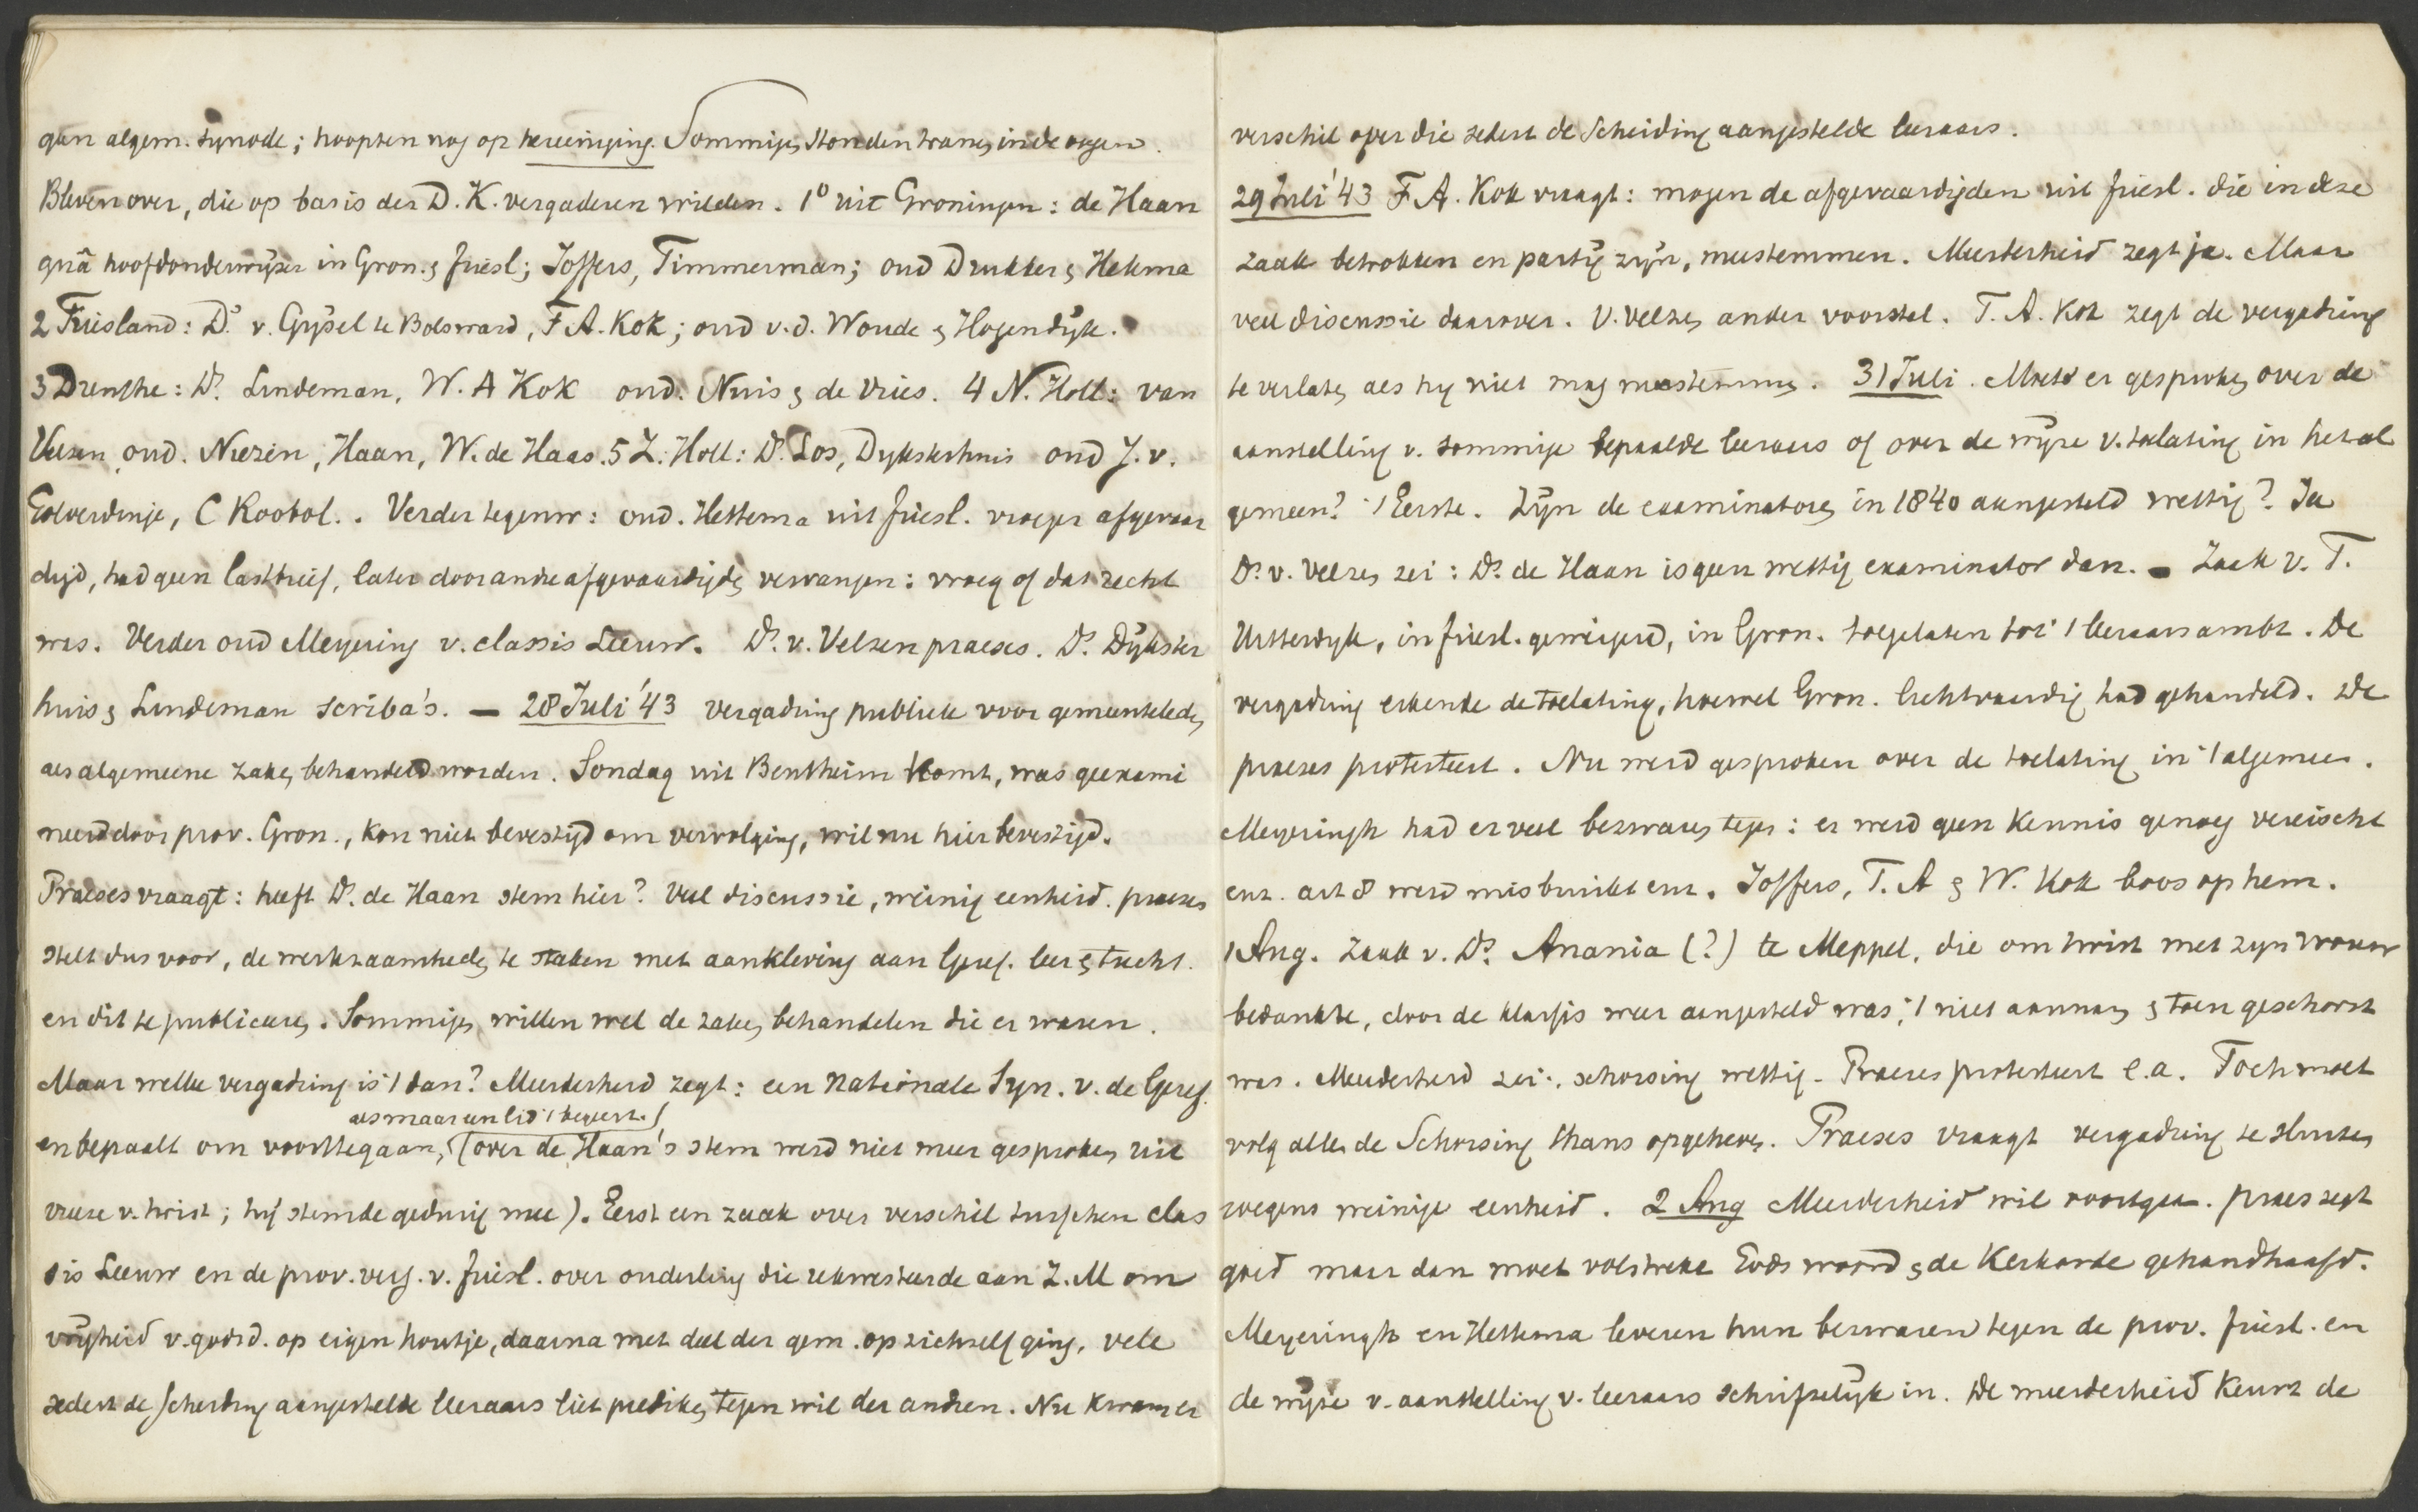 geen algem. synode; hoopten nog op hereeniging. Sommigen stonden tranen in de oogen.
Bleven over, die op basis der D. K. vergaderen wilden. 1° uit Groningen: de Haan
quâ hoofdonderwijzer in Gron. & Friesl; Joffers, Timmerman; oud Drukker & Hekma
2 Friesland: Ds. v. Gijsel te Bolsward, F A. Kok; oud v.d. Woude & Hogendijk.
3 Drenthe: Ds. Lindeman, W. A Kok oud. Nuis & de Vries. 4 N. Holl: van
Velzen oud. Niezen, Haan, W. de Haas. 5 Z. Holl: Ds. Los, Dijksterhuis oud J. v.
Golverdinge, C Koobol.. Verder tegenw: oud. Hettema uit Friesl. vroeger afgevaar
digd, had geen lastbrief, later door andre afgevaardigde vervangen: vroeg of dat recht
was. Verder oud Meyering v. classis Leeuw. Ds. v. Velzen praeses. Ds. Dijkster
huis & Lindeman scriba's. — 28 Juli '43 vergadring publiek voor gemeenteleden
als algemeene zaken behandeld worden. Sondag uit Bentheim komt, was geexami
neerd door prov. Gron., kon niet bevestigd om vervolging, wil nu hier bevestigd.
Praeses vraagt: heeft Ds. de Haan stem hier? Veel discussie, weinig eenheid. praeses
stelt dus voor, de werkzaamheden te staken met aankleving aan Geref. leer & tucht.
en dit te publiceren. Sommigen willen wel de zaken behandelen die er waren.
Maar welke vergadring is 't dan? Meerderheid zegt: een Nationale Syn. v. de Geref.
als maar een lid 't begeert.)
en bepaalt om voorttegaan, (over de Haan's stem werd niet meer gesproken uit
vreeze v. twist; hij stemde gedurig mee). Eerst een zaak over verschil tusschen clas
sis Leeuw en de prov. verg. v. Friesl. over ouderling die rekwesteerde aan Z. M om
vrijheid v. godsd. op eigen houtje, daarna met deel der gem. op zichzelf ging, vele
sedert de scheiding aangestelde leeraars liet prediken tegen wil der andren. Nu kwam er
verschil over die sedert de Scheiding aangestelde leeraars.
29 Juli '43 F A. Kok vraagt: mogen de afgevaardigden uit Friesl. die in deze
zaak betrokken en partij zijn, meestemmen. Meerderheid zegt ja. Maar
veel discussie daarover. V. Velzen ander voorstel. T. A. Kok zegt de vergadring
te verlaten als hij niet mag meestemmen. 31 Juli. Moet er gesproken over de
aanstelling v. sommige bepaalde leeraars of over de wijze v. toelating in het al
gemeen? 't Eerste. Zijn de examinatoren in 1840 aangesteld wettig? Ja
Ds. v. Velzen zei: Ds. de Haan is geen wettig examinator dan. — Zaak v. T.
Uitterdijk, in Friesl. geweigerd, in Gron. toegelaten tot 't leeraarsambt. De
vergadring erkende de toelating, hoewel Gron. lichtvaardig had gehandeld. De
praeses protesteert. Nu werd gesproken over de toelating in 't algemeen.
Meyeringh had er veel bezwaren tegen: er werd geen kennis genoeg vereischt
enz. art 8 werd misbruikt enz. Joffers, T. A & W. Kok boos op hem.
1 Aug. Zaak v. Ds. Anania (?) te Meppel, die om twist met zijn vrouw
bedankte, door de klassis weer aangesteld was, 't niet aannam & toen geschorst
was. Meerderheid zei: schorsing wettig. Praeses protesteert e.a. Toch moet
volg allen de Schorsing thans opgeheven. Praeses vraagt vergadring te sluiten
wegens weinige eenheid. 2 Aug Meerderheid wil voortgaan. praes zegt
goed maar dan moet volstrekt Gods woord & de Kerkorde gehandhaafd.
Meyeringh en Hettema leveren hun bezwaren tegen de prov. Friesl. en
de wijze v. aanstelling v. leeraars schriftelijk in. De meerderheid keurt de